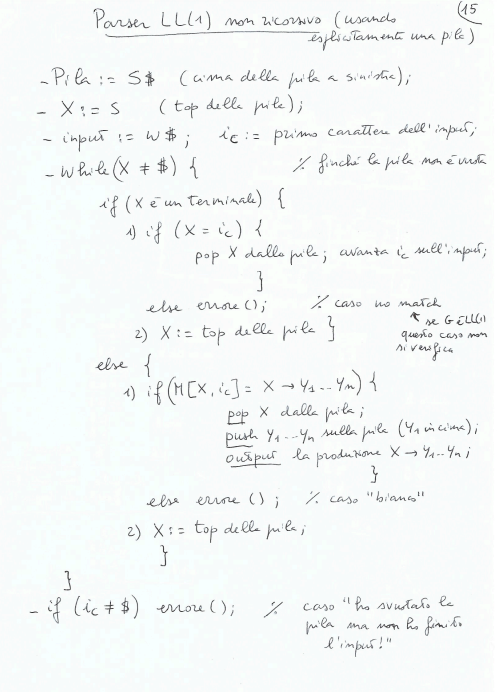 15
Parser LL(1) non ricorsivo (usando
esplicitamente una pila)
- Pila := S$ (cima della pila a sinistra);
- X := S (top della pila);
- input := w$; ic := primo carattere dell'input;
- While (X ≠ $) { % finché la pila non è vuota
if (X è un terminale) {
1) if (X = ic) {
pop X dalla pila; avanza ic sull'input;
}
else errore(); % caso no match
2) X := top della pila } ↖ se G è LL(1)
questo caso non
si verifica
else {
1) if (M[X, ic] = X → Y1 -- Yn) {
pop X dalla pila;
push Y1 -- Yn sulla pila (Y1 in cima);
output la produzione X → Y1 -- Yn;
}
else errore (); % caso "bianco"
2) X := top della pila;
}
}
- if (ic ≠ $) errore(); % caso "ho svuotato la
pila ma non ho finito
l'input!"